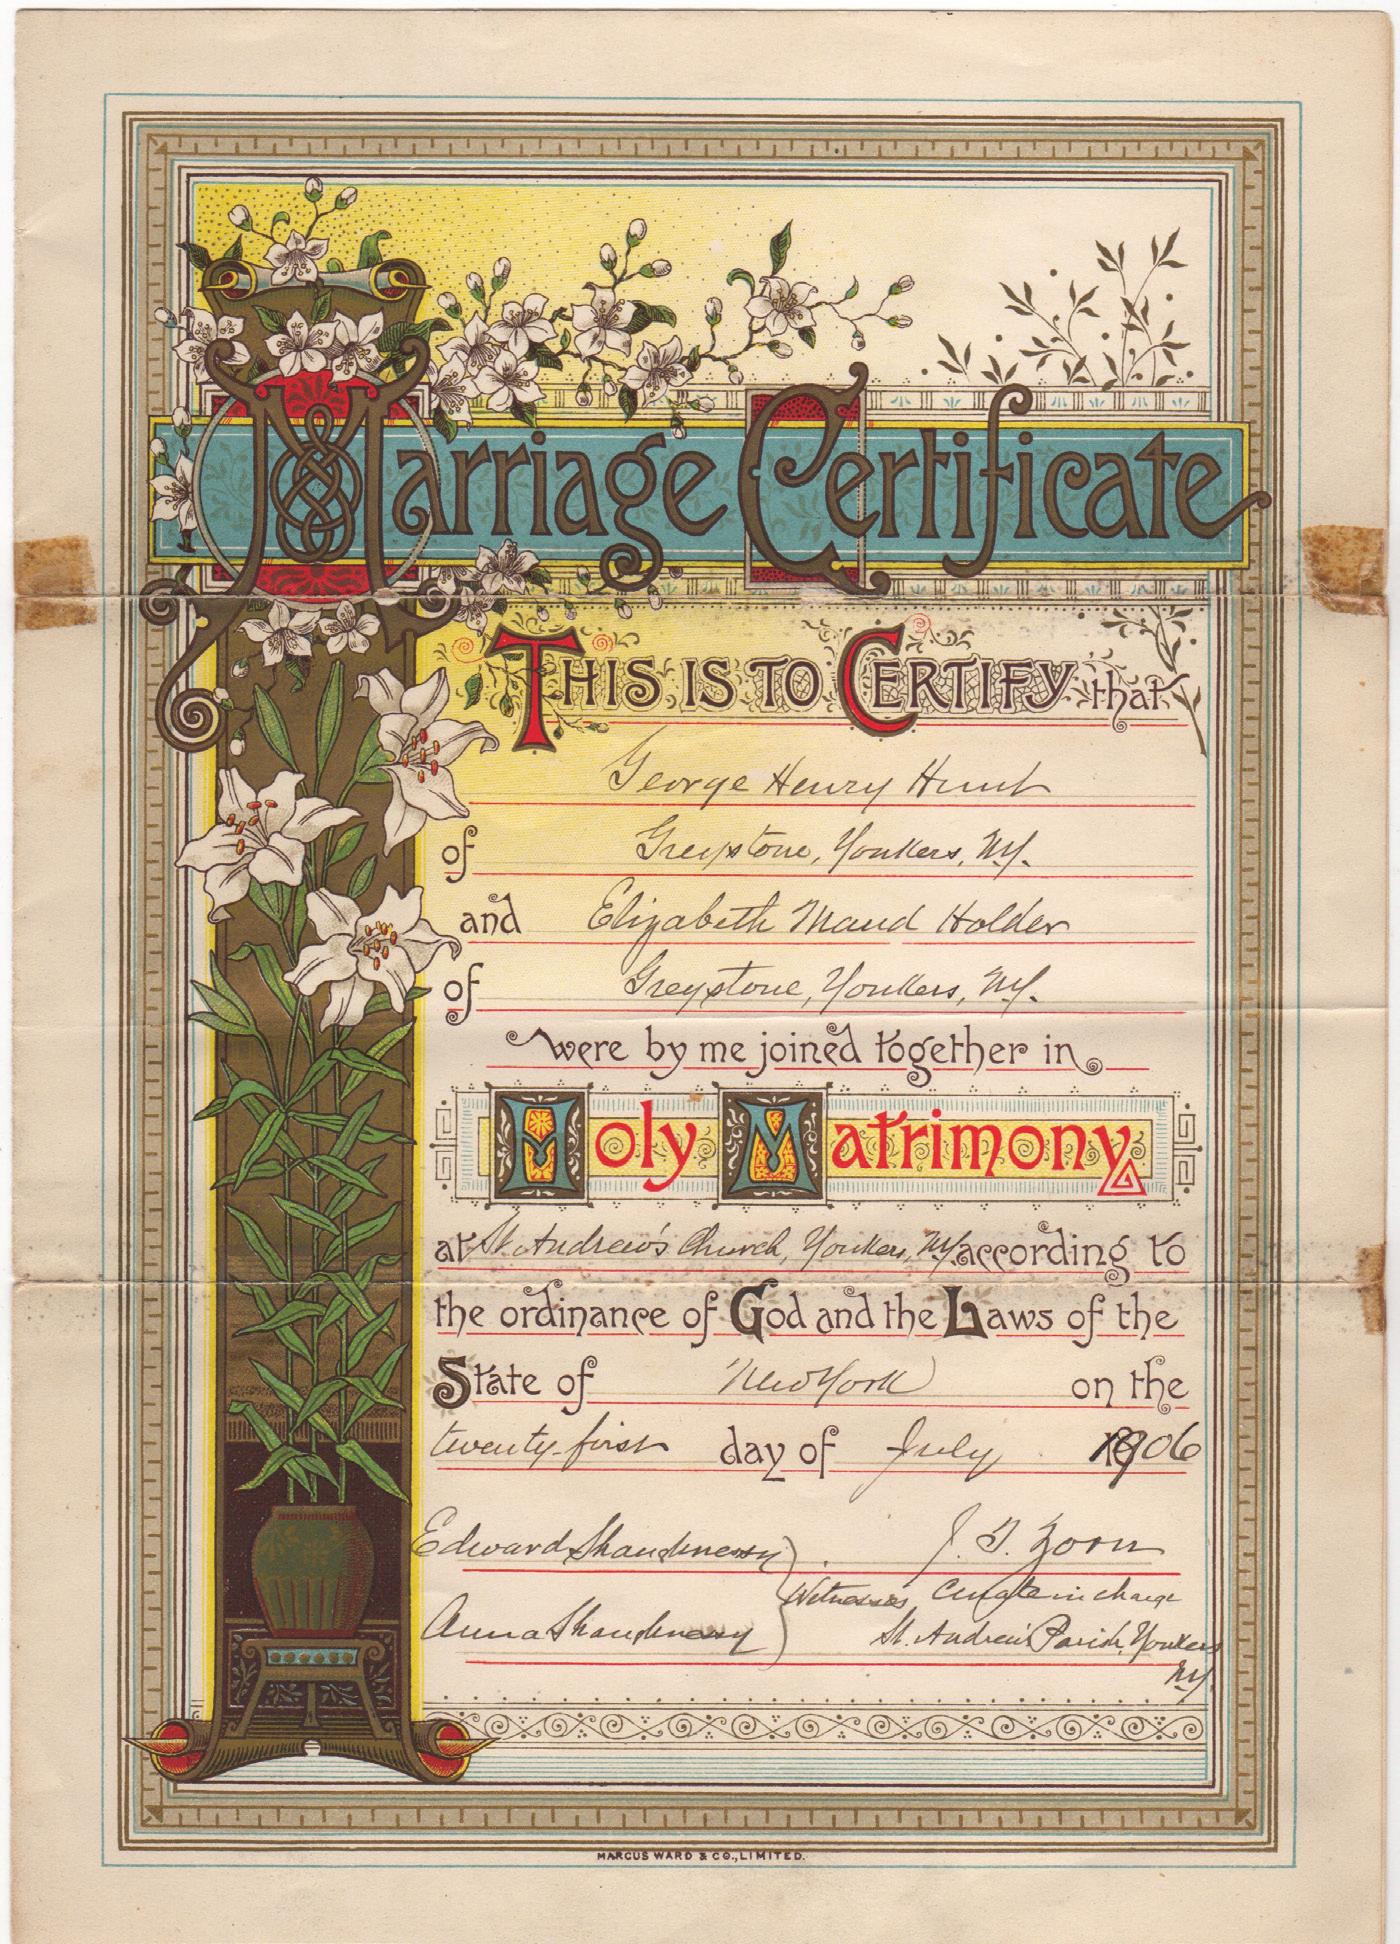 Marriage Certificate
THIS IS TO CERTIFY that
George Henry Hunt
of Greystone, Yonkers, N.Y.
and Elizabeth Maud Holder
of Greystone, Yonkers, N.Y.
were by me joined together in
Holy Matrimony
at St. Andrew's Church, Yonkers, N.Y. according to
the ordinance of God and the Laws of the
State of New York on the
twenty-first day of July 1906
Edward Shaughnessy J. F. Zorn
Witnesses Curate in charge
Anna Shaughnessy St. Andrew's Parish, Yonkers
N.Y.
MARCUS WARD & CO., LIMITED.